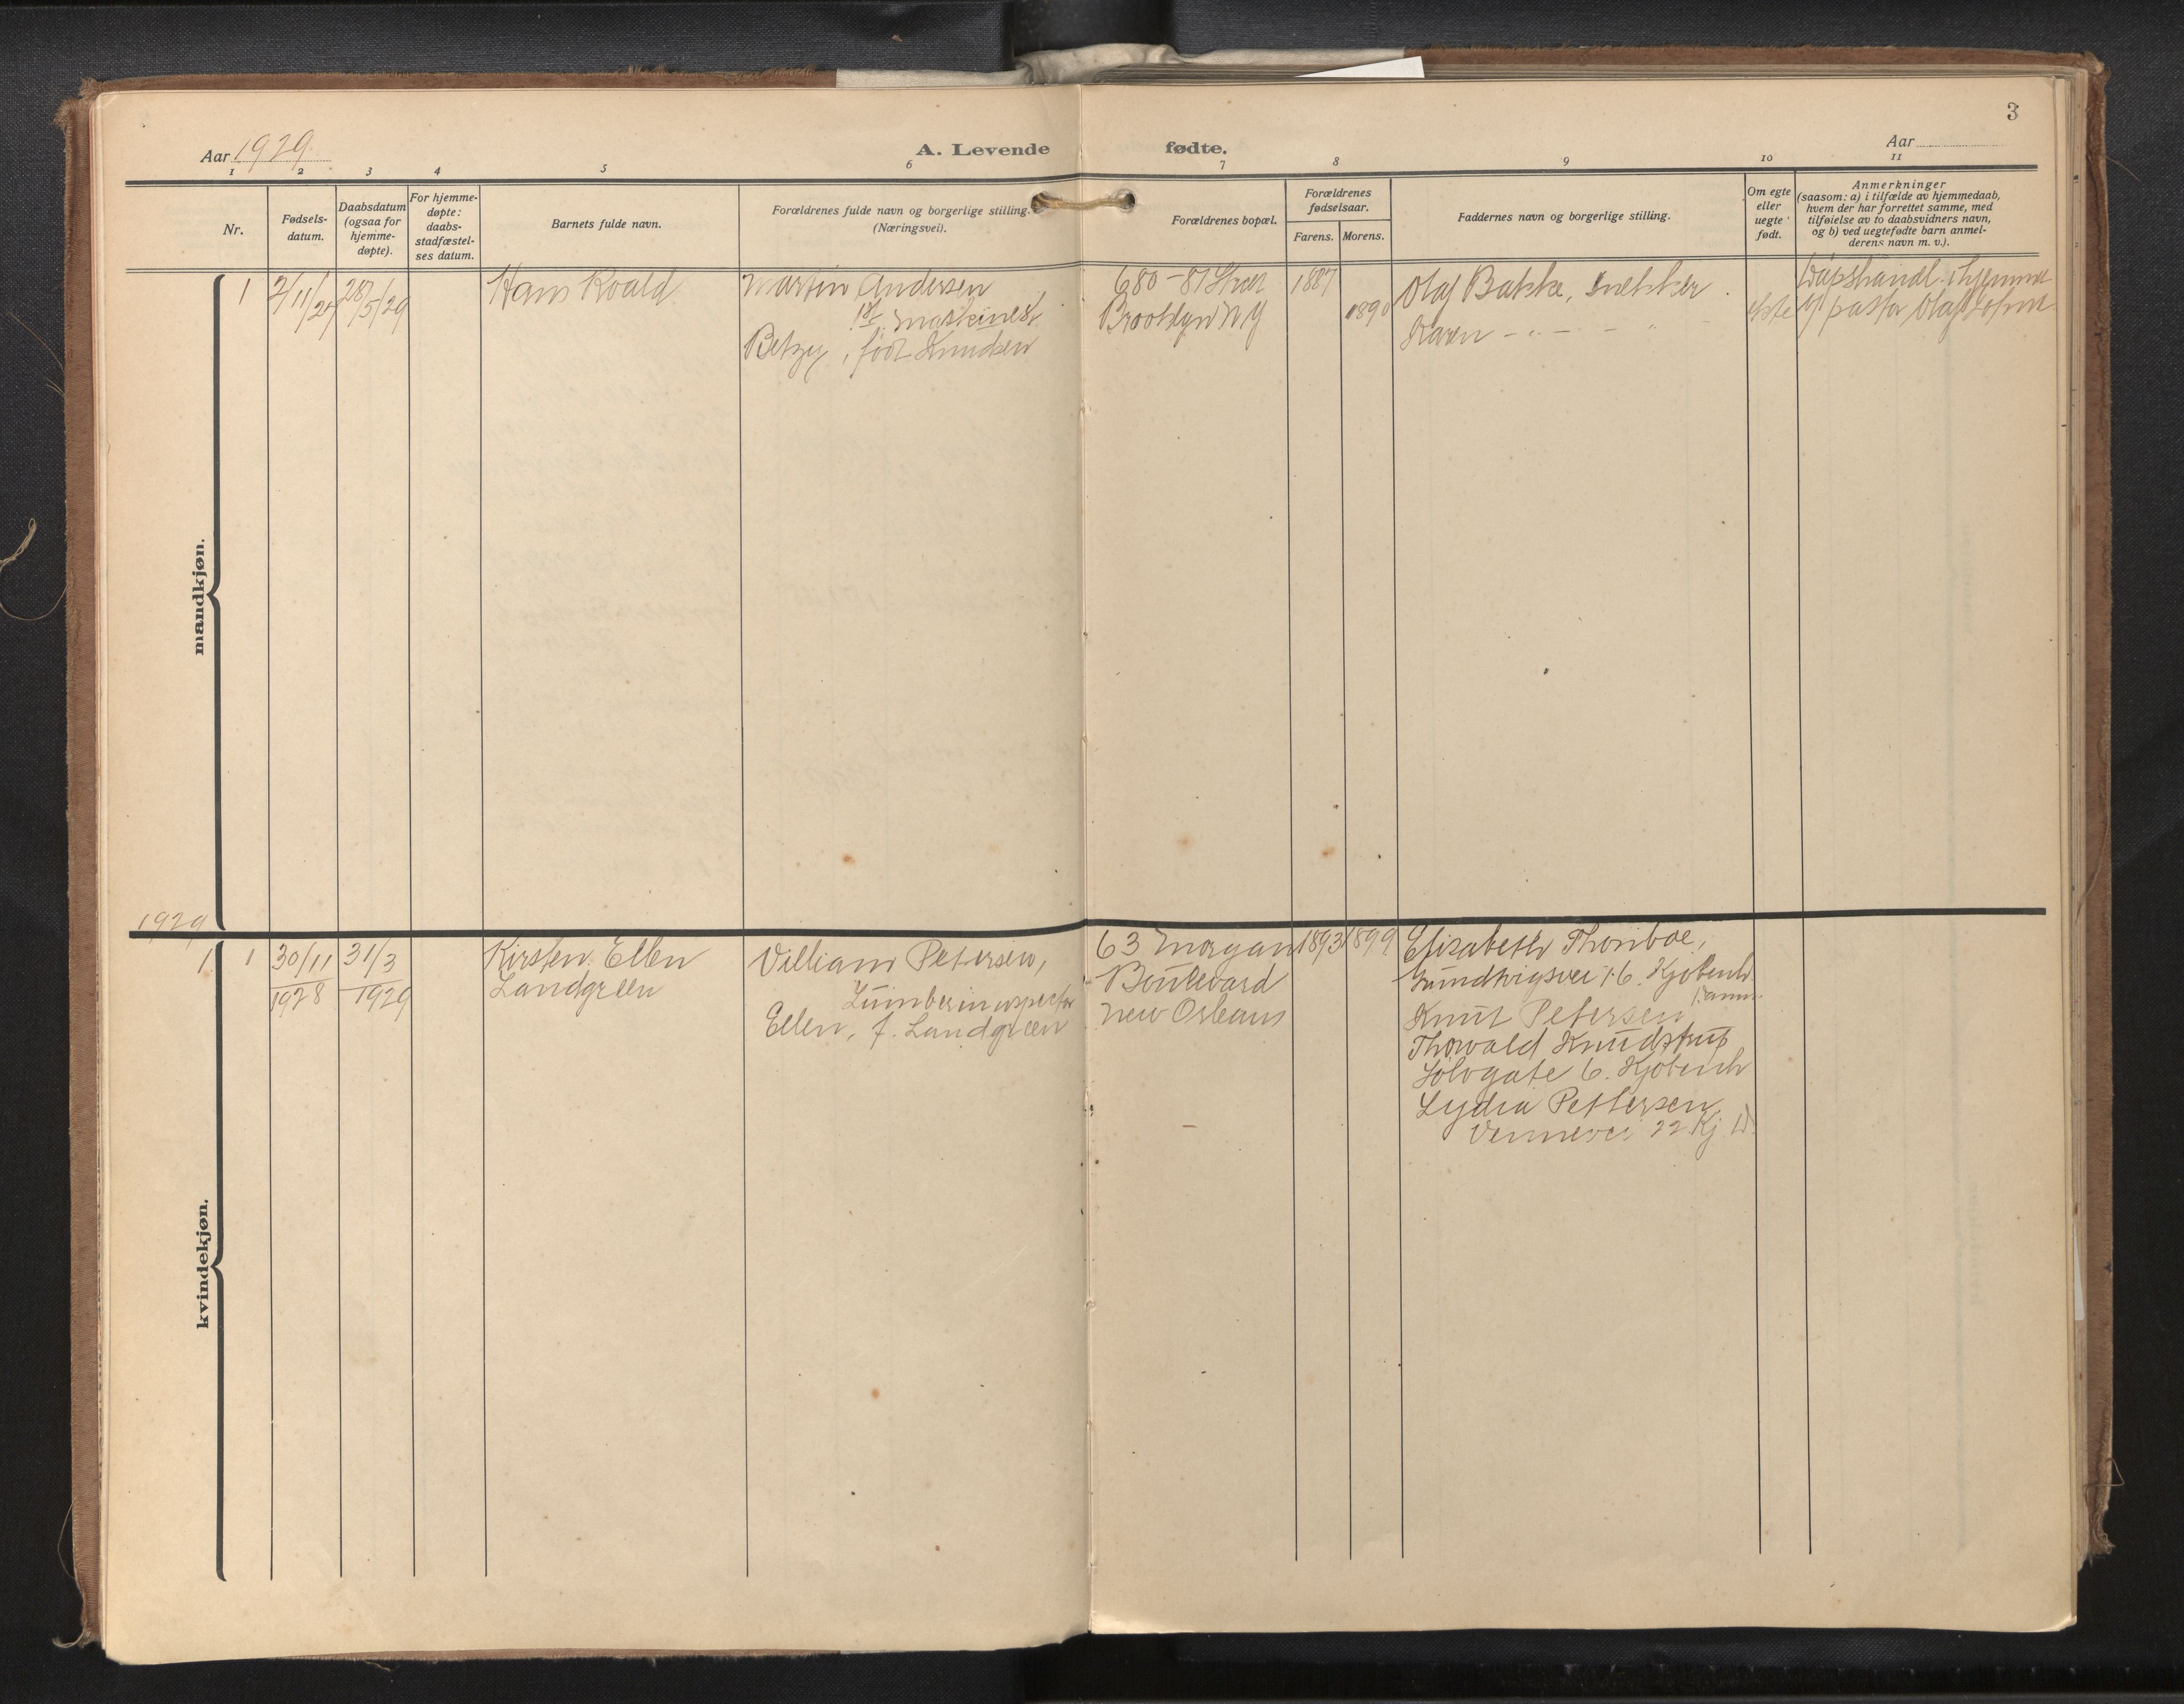 3
Aar 1929
A. Levende fødte.
Aar
1 2 3 4 5 6 7 8 9 10 11
Nr.
Fødsels-
datum.
Daabsdatum
(ogsaa for
hjemme-
døpte).
For hjemme-
døpte:
daabs-
stadfæstel-
ses datum.
Barnets fulde navn.
Forældrenes fulde navn og borgerlige stilling.
(Næringsvei).
Forældrenes bopæl.
Forældrenes
fødselsaar.
Farens. Morens.
Faddernes navn og borgerlige stilling.
Om egte
eller
uegte
født.
Anmerkninger
(saasom: a) i tilfælde av hjemmedaab,
hvem der har forrettet samme, med
tilføielse av to daabsvidners navn,
og b) ved uegtefødte barn anmel-
derens navn m. v.).
mandkjøn.
1
2/11/27
28/5/29
Hans Roald
Martin Andersen
1ste maskinest
Betzy, født Knudsen
680 - 81 Street
Brooklyn N Y
1887
1890
Olaf Bakke, snekker
Karen - " - - " -
ekte
Dåpshandl. i hjemmet
v/ pastor Olaf
1929
kvindekjøn.
1
1
30/11
1928
31/3
1929
Kirsten Ellen
Landgreen
Villiam Petersen,
Lumberinspector
Ellen, f. Landgreen
63 Morgan
Boulevard
New Orleans
1893
1899
Elisabeth Thonboe,
Grundtvigsvei 16. Kjøbenh.
Danm.
Knut Petersen
Thorvald Knudstrup
Sølvgate 6. Kjøbenh
Lydia Pettersen
Vennevei 22 Kj. D.